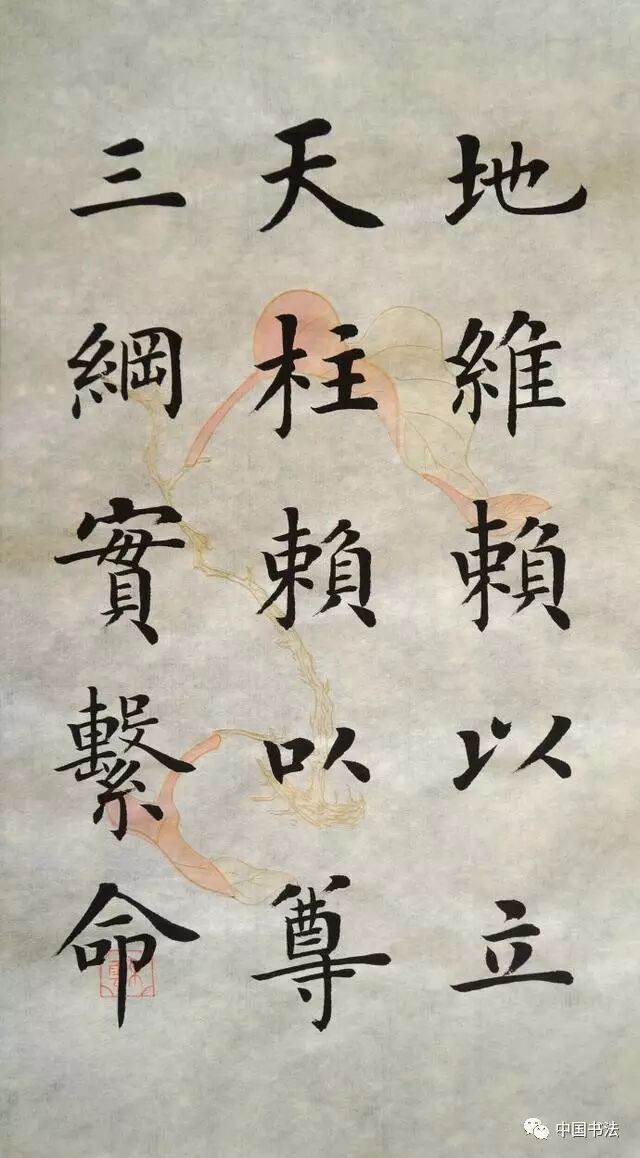 地維賴以立
天柱賴以尊
三綱實繫命
中国书法